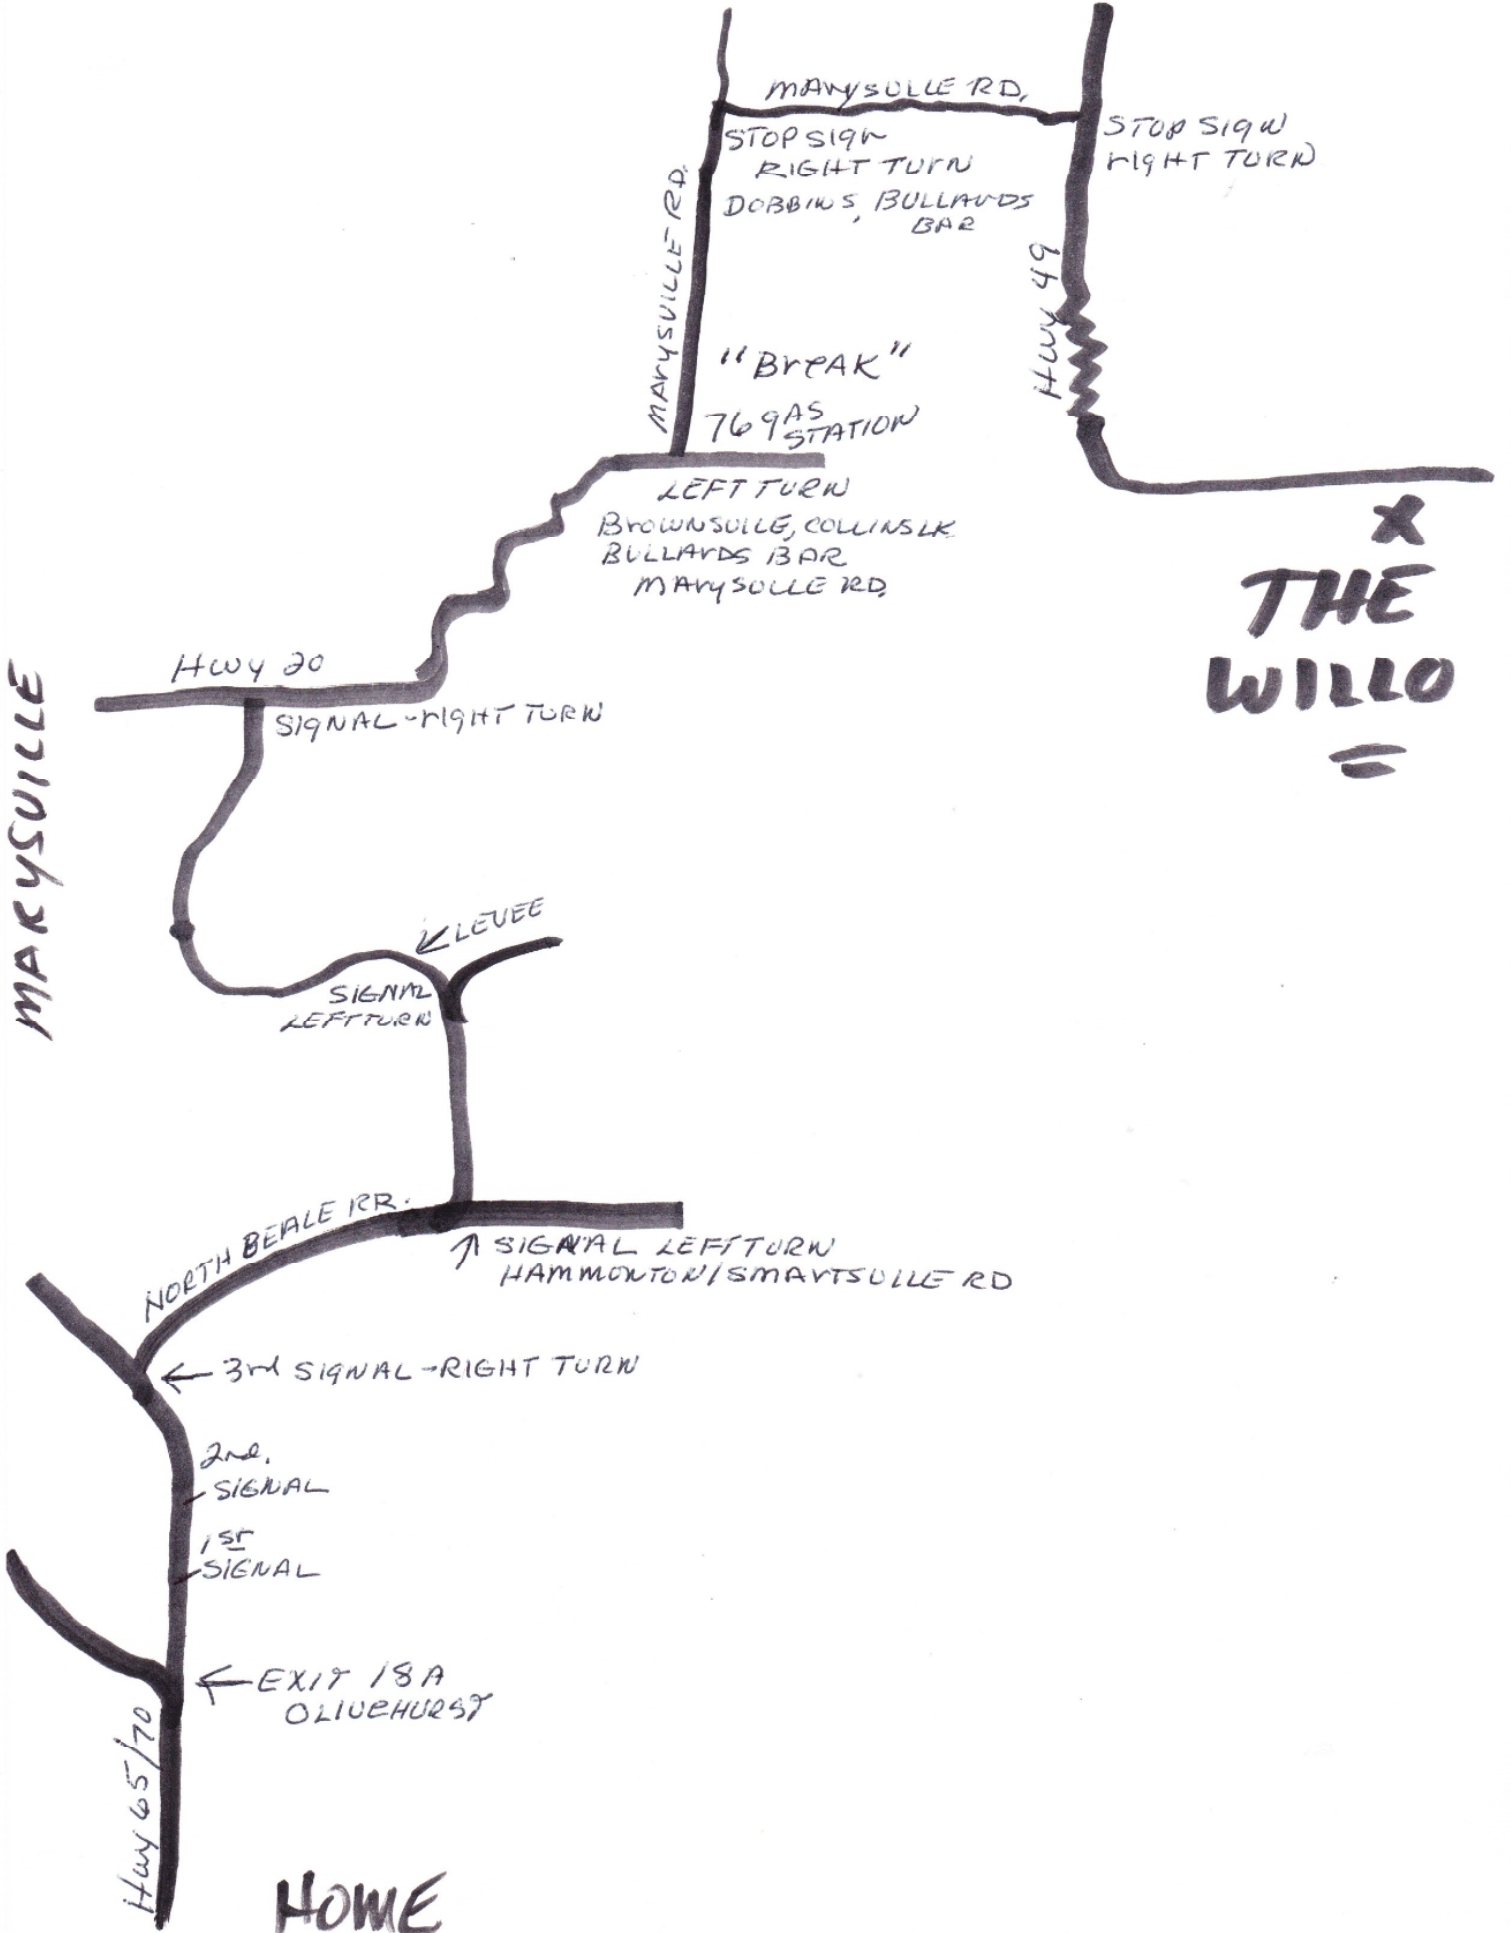 MARYSVILLE RD.
STOP SIGN
RIGHT TURN
DOBBINS, BULLARDS
BAR
STOP SIGN
RIGHT TURN
MARYSVILLE RD.
HWY 49
"BREAK"
76 GAS
STATION
LEFT TURN
BROWNSVILLE, COLLINS LK
BULLARDS BAR
MARYSVILLE RD.
X
THE
WILLO
HWY 20
SIGNAL-RIGHT TURN
MARYSVILLE
LEVEE
SIGNAL
LEFT TURN
NORTH BEALE RR.
SIGNAL LEFT TURN
HAMMONTON/SMARTSVILLE RD
3rd SIGNAL-RIGHT TURN
2nd.
SIGNAL
1st
SIGNAL
EXIT 18A
OLIVEHURST
HWY 65/70
HOME